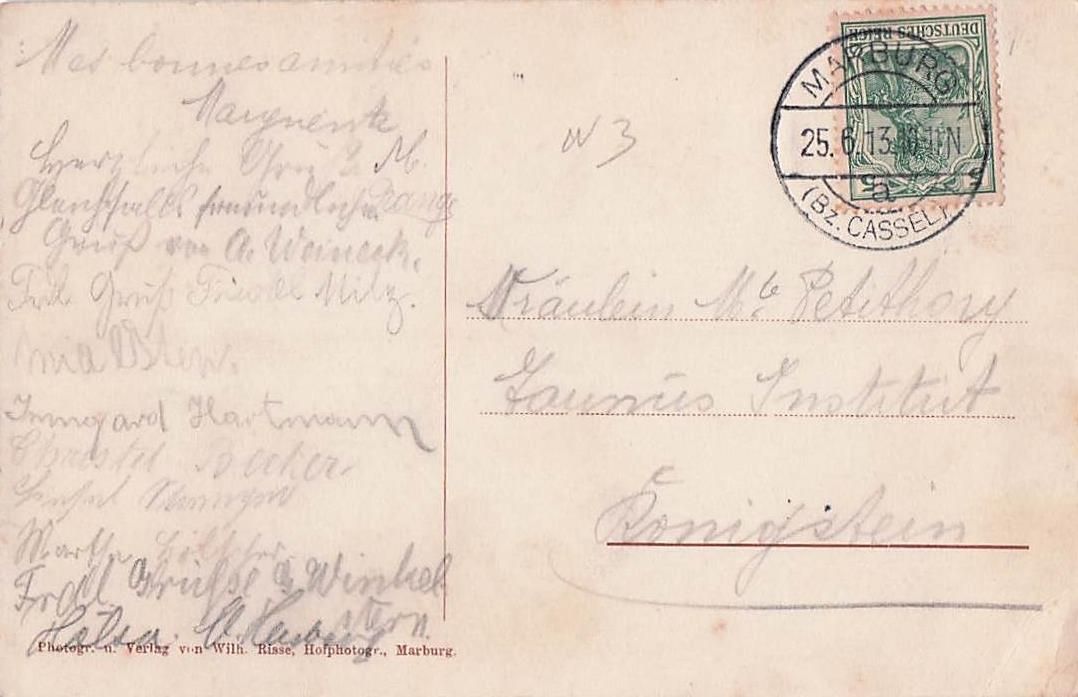 Mes bonnes amitiés
Marguerite
Herzliche Gruß
Gleichfalls freundlichen
Gruß von A. Weineck.
Frdl. Gruß Friedel Milz.
Irmgard Hartmann
Christel Becker
Martha
Frdl. Grüße A. Winkel
N 3
DEUTSCHES REICH
MARBURG
25.6.13. 10-11N
a
(Bz. CASSEL)
Fräulein M. Petithory
Taunus Institut
Königstein
Photogr. u. Verlag von Wilh. Risse, Hofphotogr., Marburg.